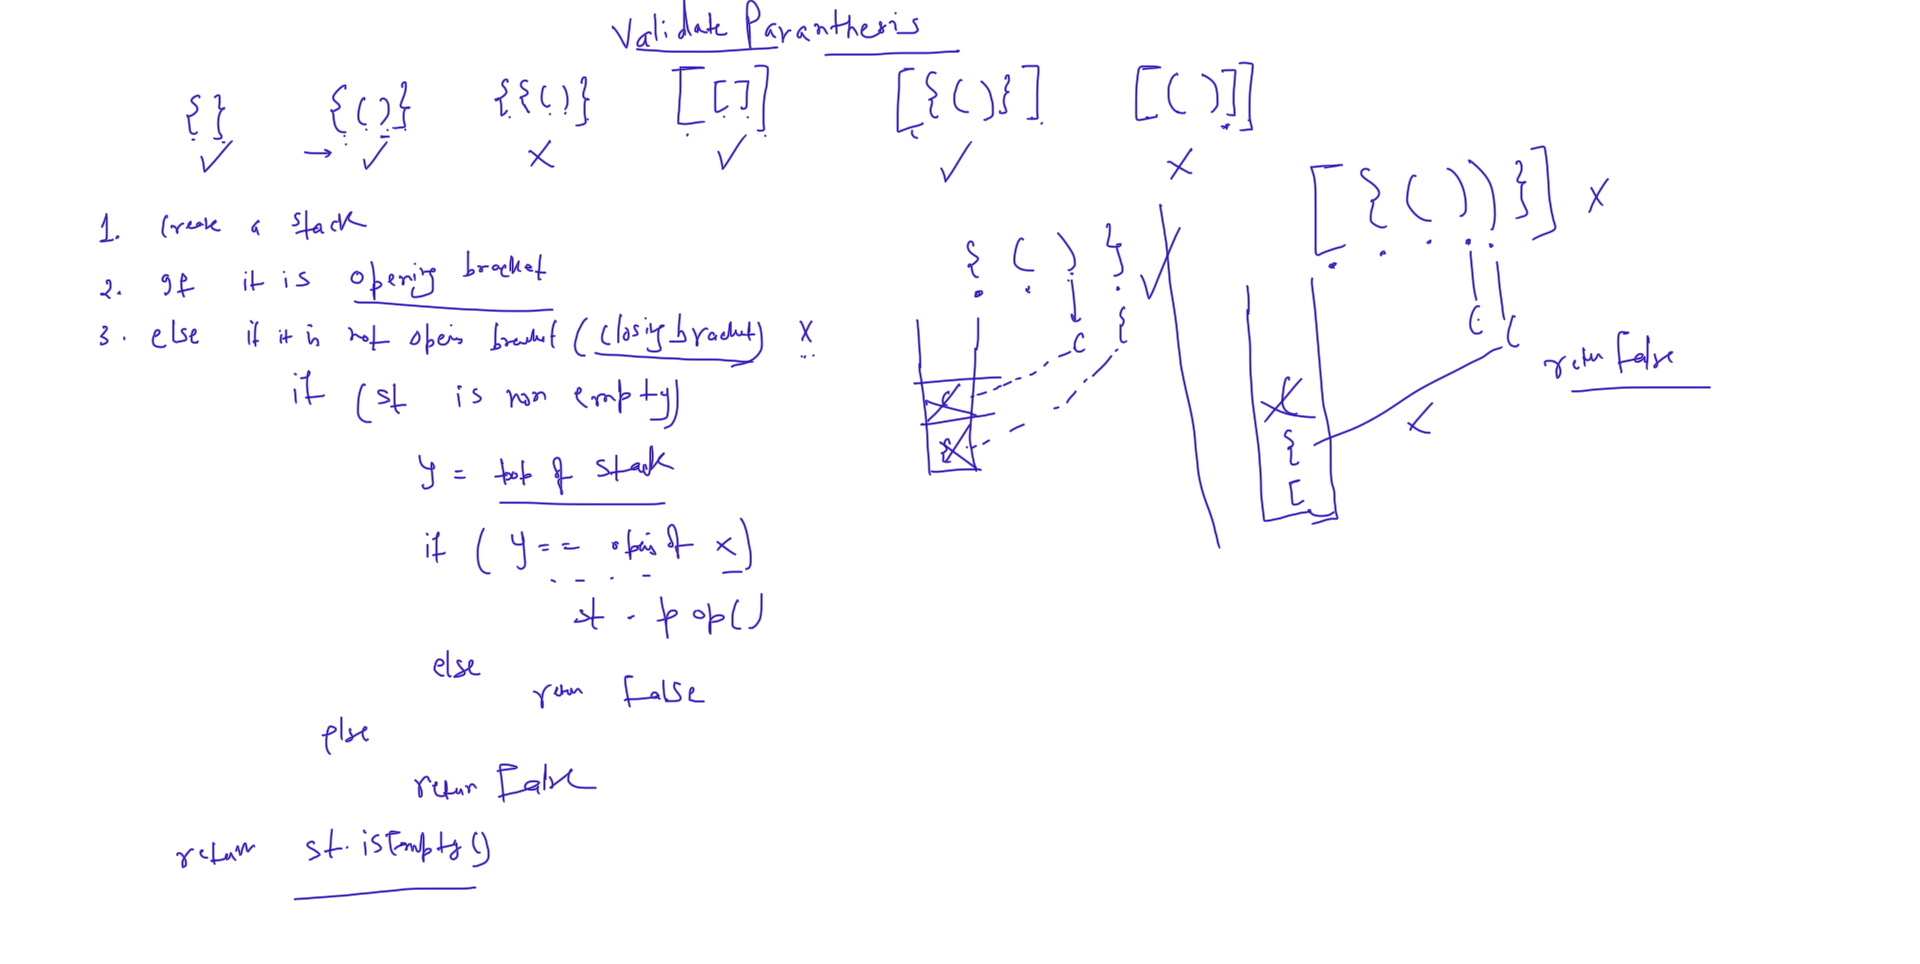 Validate Paranthesis
{} {()} {{()} [[]] [{()}] [()]]
✓ → ✓ X ✓ ✓ X
[{())}] X
1. Create a stack
{ ( ) } ✓
2. If it is opening bracket
3. else if it is not open bracket (closing bracket) X
( {
( (
return False
if (st is non empty)
(
{
(
{
[
X
y = top of stack
if (y == open of x)
st . pop()
else
return False
else
return False
return st.isEmpty()